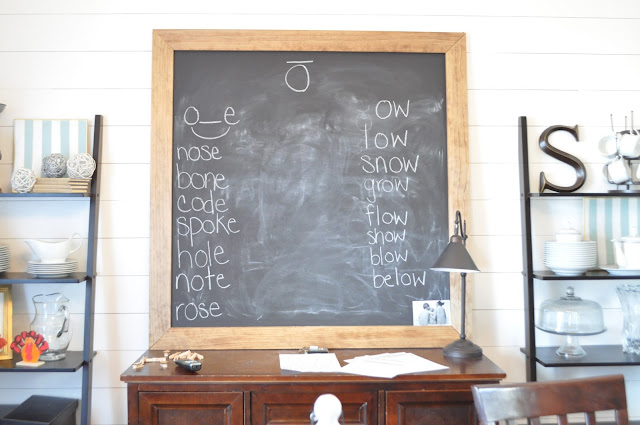 ō
o_e
nose
bone
code
spoke
hole
note
rose
ow
low
snow
grow
flow
show
blow
below
S